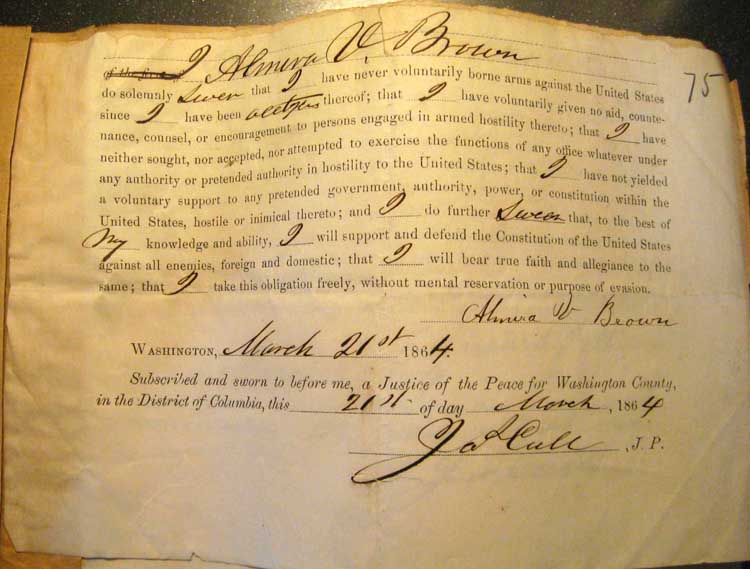 I Almira V. Brown
75
do solemnly Swear that I have never voluntarily borne arms against the United States
since I have been a citizen thereof; that I have voluntarily given no aid, counte-
nance, counsel, or encouragement to persons engaged in armed hostility thereto; that I have
neither sought, nor accepted, nor attempted to exercise the functions of any office whatever under
any authority or pretended authority in hostility to the United States; that I have not yielded
a voluntary support to any pretended government, authority, power, or constitution within the
United States, hostile or inimical thereto; and I do further Swear that, to the best of
my knowledge and ability, I will support and defend the Constitution of the United States
against all enemies, foreign and domestic; that I will bear true faith and allegiance to the
same; that I take this obligation freely, without mental reservation or purpose of evasion.
Almira V Brown
Washington, March 21st 1864.
Subscribed and sworn to before me, a Justice of the Peace for Washington County,
in the District of Columbia, this 21st of day March, 1864
Jas Cull, J.P.